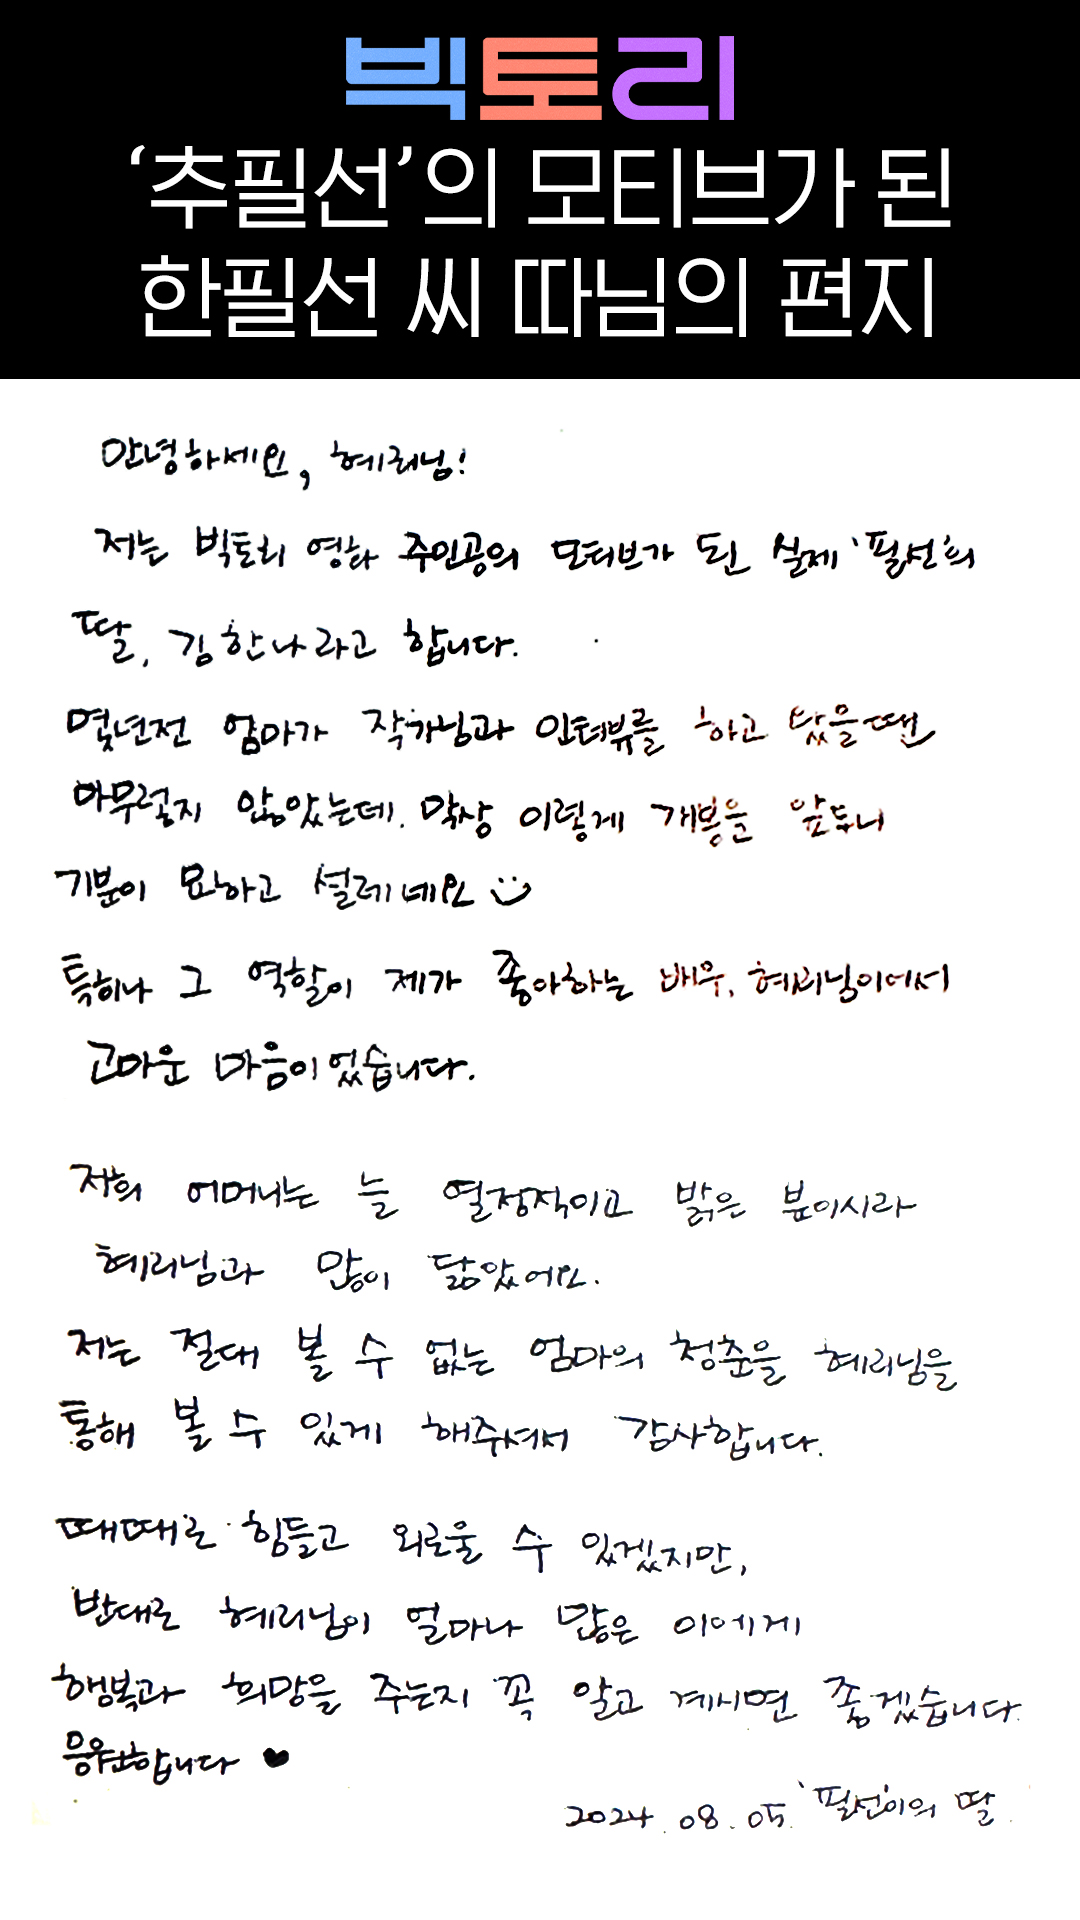 빅토리
‘추필선’의 모티브가 된
한필선 씨 따님의 편지
안녕하세요, 혜리님!
저는 빅토리 영화 주인공의 모티브가 된 실제 '필선'의
딸, 김한나라고 합니다.
몇년전 엄마가 작가님과 인터뷰를 하고 났을땐
아무렇지 않았는데. 막상 이렇게 개봉을 앞두니
기분이 묘하고 설레네요
특히나 그 역할이 제가 좋아하는 배우, 혜리님이어서
고마운 마음이었습니다.
저희 어머니는 늘 열정적이고 밝은 분이시라
혜리님과 많이 닮았어요.
저는 절대 볼 수 없는 엄마의 청춘을 혜리님을
통해 볼 수 있게 해주셔서 감사합니다.
때때로 힘들고 외로울 수 있겠지만,
반대로 혜리님이 얼마나 많은 이에게
행복과 희망을 주는지 꼭 알고 계시면 좋겠습니다.
응원합니다 ♥
2024.08.05. '필선'이의 딸